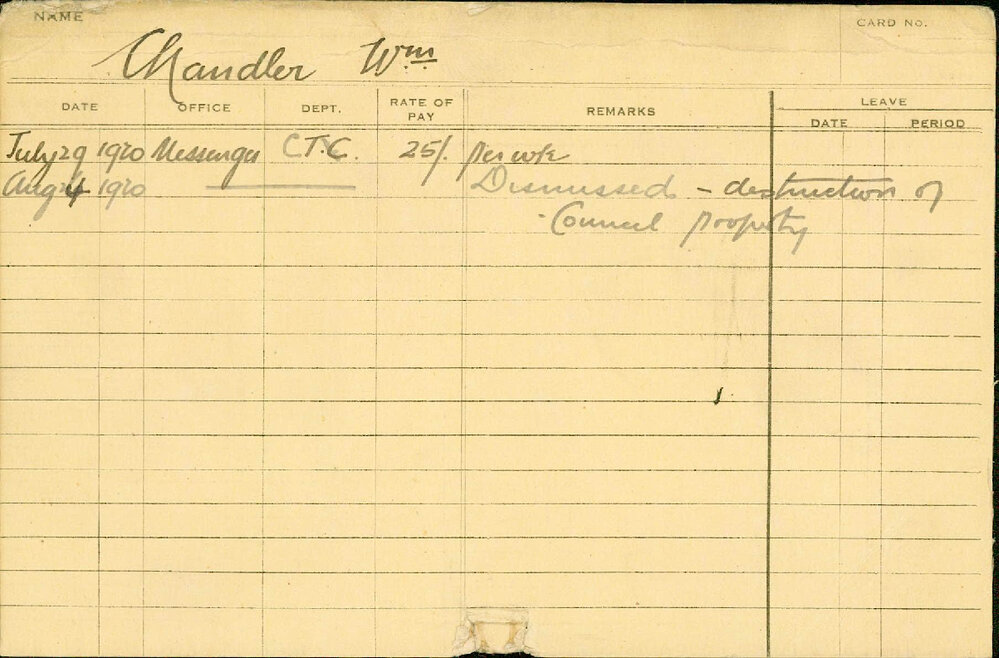 NAME
CARD No.
Chandler Wm
DATE OFFICE DEPT. RATE OF PAY REMARKS LEAVE
DATE PERIOD
July 29 1920 Messenger C.T.C. 25/. per wk
Aug 4 1920 Dismissed - destruction of
Council property